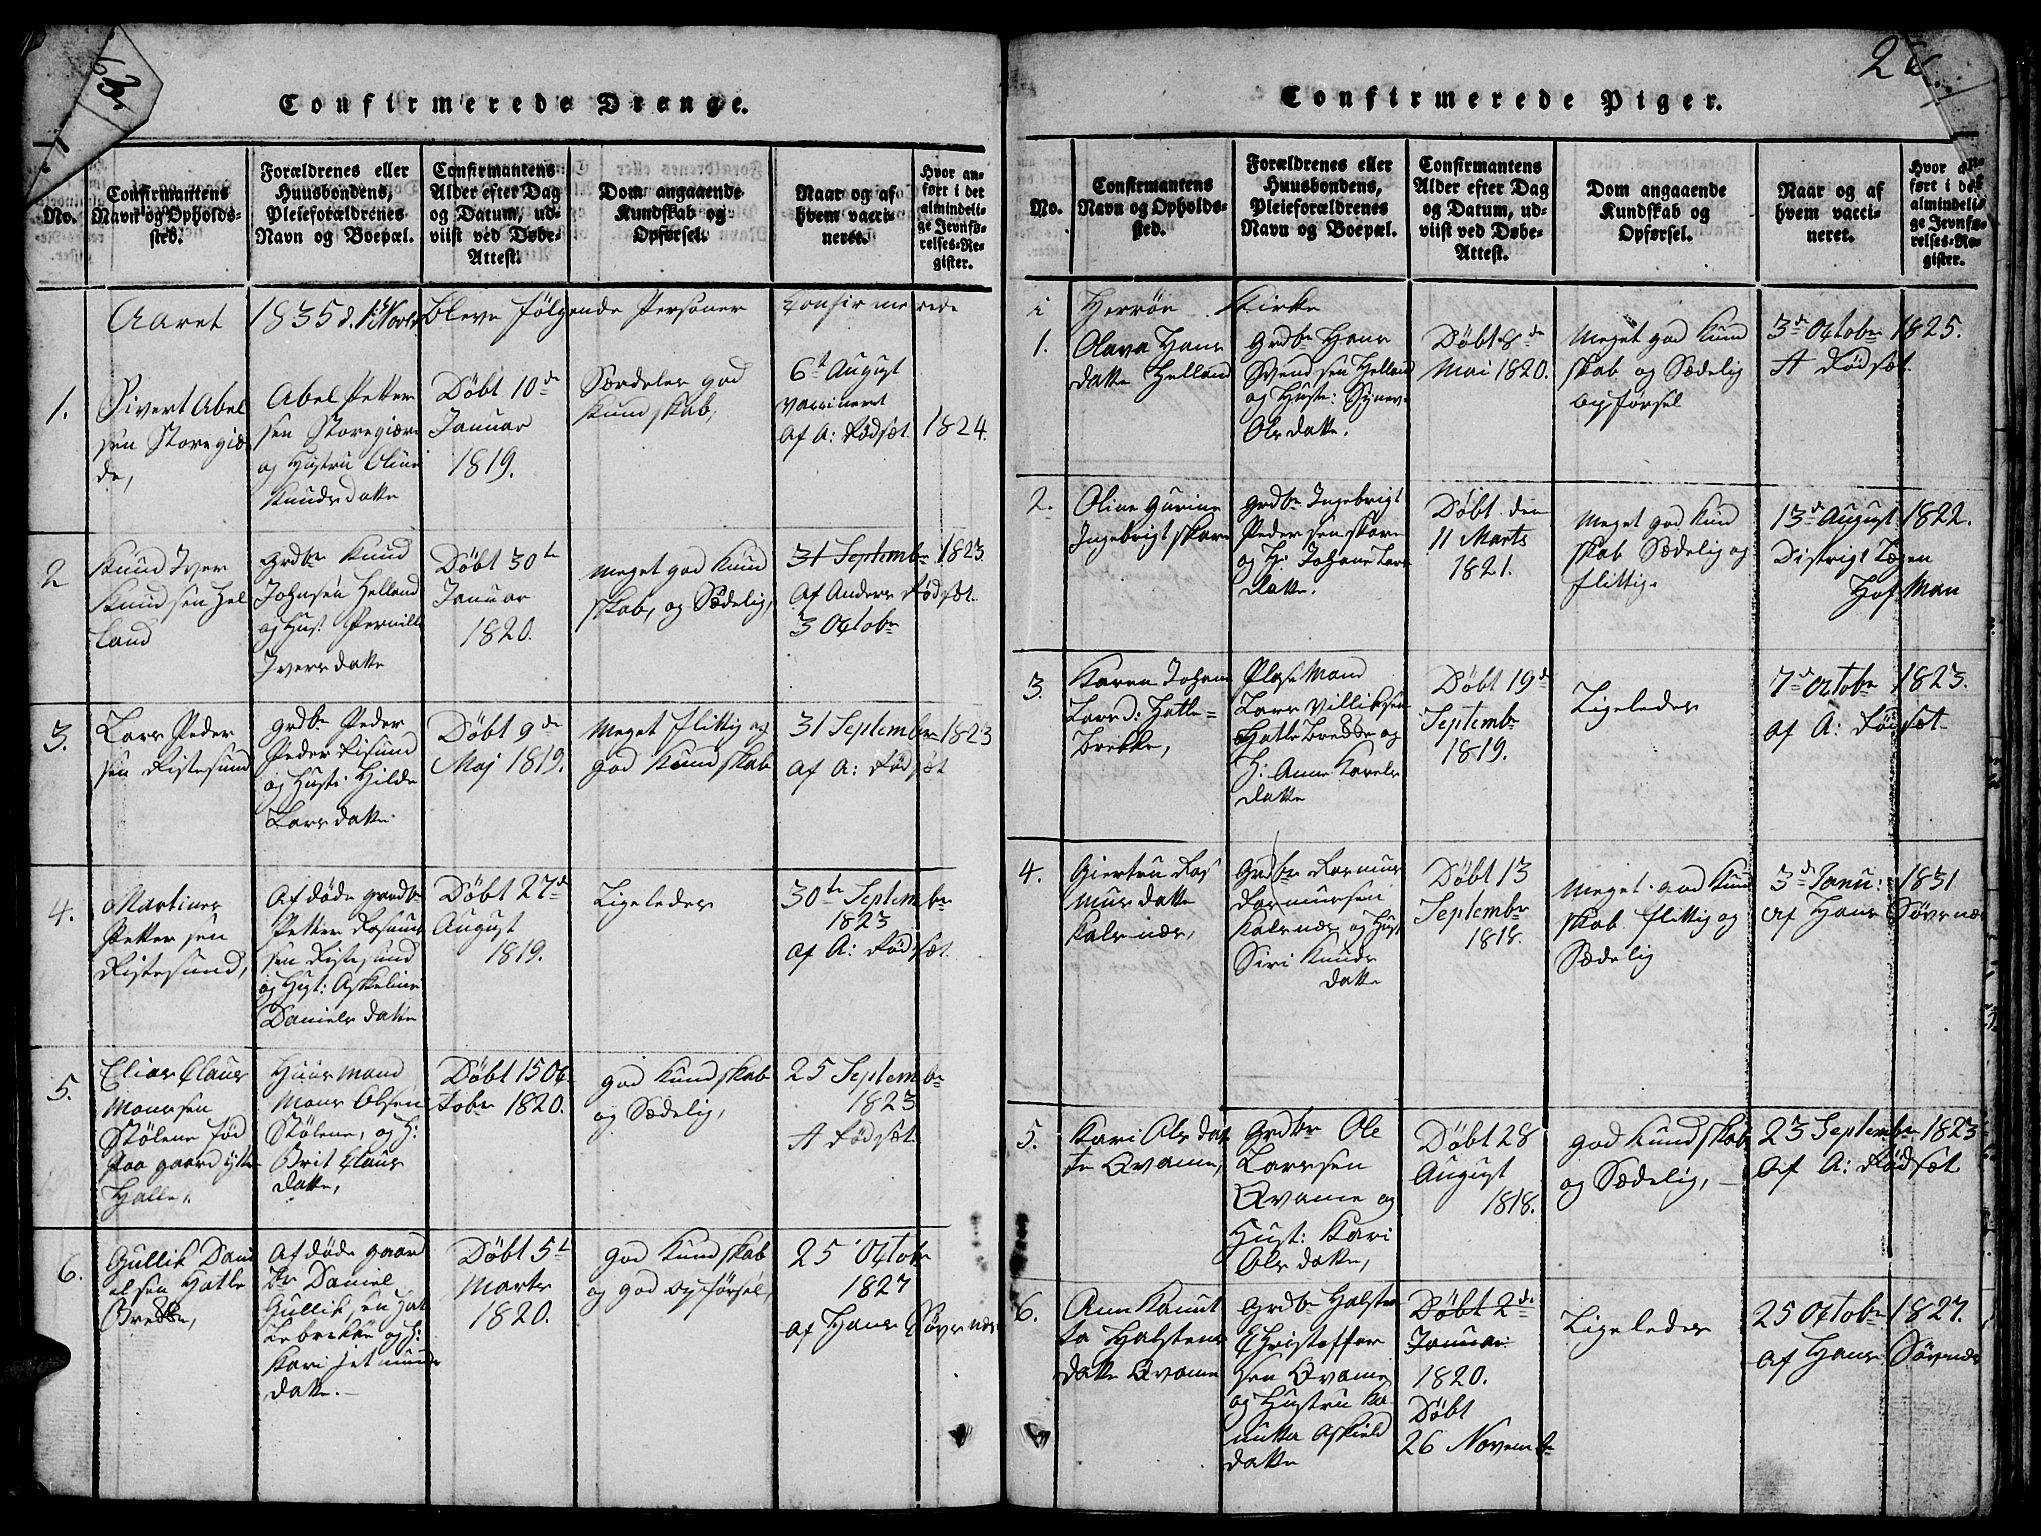 Confirmerede Drenge.
No.
Confirmantens
Navn og Opholds-
sted.
Forældrenes eller
Huusbondens,
Pleieforældrenes
Navn og Boepæl.
Confirmantens
Alder efter Dag
og Datum, ud-
viist ved Døbe-
Attest.
Dom angaaende
Kundskab og
Opførsel.
Naar og af
hvem vacci-
neret.
Hvor an-
ført i det
almindeli-
ge Jevnfø-
relses-Re-
gister.
Aaret 1835 d. 1 Novbr bleve følgende Personer Confirmerede
1.
Sivert Abel
sen Storegiær
de,
Abel Petter
sen Storegiære
og Hustru Oline
Knudsdatte
Døbt 10de
Januar
1819.
Særdeles god
Kundskab,
6t August
vaccineret
af A: Rødset. 1824.
2
Knud Iver
Knudsen Hel
land
Grdbr Knud
Johnsen Helland
og Hust Pernille
Iversdatte
Døbt 30te
Januar
1820.
Meget god Kund
skab, og Sædelig,
31 Septembr 1823
af Anders Rødset.
3 Octobr
3.
Lars Peder
sen Ristesund
Grdbr Peder
Peder Risund
og Hust: Hilde
Larsdatte.
Døbt 9de
Maj 1819.
Meget flittig og
god Kundskab
31 Septembr 1823
af A: Rødset
4.
Martines
Petter sen
Ristesund,
Afdøde gaardbr
Petter Rasmus
sen Ristesund
og Hust: Askeline
Daniels datte
Døbt 27d
August
1819.
Ligeledes
30te Septembr
1823
af A: Rødset.
5.
Elias Claus
Monssen
Stølene fød
paa gaard ytte
Halle,
Huusmand
Mons Olsen
Stølene, og H:
Brit Claus
datte,
Døbt 15 Oc
tobr 1820.
god Kundskab
og Sædelig,
25 Septembr
1823
A Rødset.
6.
Gullik Dani
elsen Hatle
Brekke,
Afdøde gaard
br Daniel
Gulliksen Hat
lebrekke og H:
Kari Jetmunds
datte.
Døbt 5t
Marts
1820.
god Kundskab
og god opførsel,
25 Octobr
1827
af Hans Søvsnæs
Confirmerede Piger.
No.
Confirmantens
Navn og Opholds-
sted.
Forældrenes eller
Huusbondens,
Pleieforældrenes
Navn og Boepæl.
Confirmantens
Alder efter Dag
og Datum, ud-
viist ved Døbe-
Attest.
Dom angaaende
Kundskab og
Opførsel.
Naar og af
hvem vacci-
neret.
Hvor an-
ført i det
almindeli-
ge Jevnfø-
relses-Re-
gister.
i Herrøe Kirke
1.
Olava Hans
datte Helland
Grdbr Hans
Svendsen Helland
og Hustr: Synev
Olsdatte.
Døbt 8de
Mai 1820.
Meget god Kund
skab og Sædelig
opførsel
3d Octobr 1825.
A Rødset.
2.
Oline Gurine
Ingebrigt Skare
Grdbr Ingebrigt
Pedersen Skare
og H: Johane Lars
datte.
Døbt den
11 Marts
1821.
Meget god Kund
skab Sædelig og
flittig.
13d August 1822.
Distrigt Lægen
Hofman
3
Karen Johan
Larsd: Hatle-
brekke,
Plasmand
Lars Villiksen
Hatlebrekke og
H: Anne Karels
datte
Døbt 19d
Septembr
1819.
Ligeledes
7d Octobr 1823.
af A: Rødset.
4.
Giertru Ras
mus datte
Kalsnæs,
Grdbr Rasmus
Rasmussen
Kalsnæs og Hust
Siri Knuds
datte
Døbt 13
Septembr
1818.
Meget god Kund
skab flittig og
Sædelig
3d Janu: 1831
af Hans Søvsnæs
5.
Kari Ols dat
te Qvame,
Grdbr Ole
Larssen
Qvame og
Hust: Kari
Olsdatte,
Døbt 28
August
1818.
god Kundskab
og Sædelig,
23 Septembr 1823
af A: Rødset
6.
Ane Kanut
ta Halstens
datte Qvame
Grdbr Halsten
Christoffer
sen Qvame
og Hustru Ka
nutta Askield
datte
Døbt 2de
Januar
1820.
Døbt
26 Novembr
Ligeledes
25 Octobr 1827.
af Hans Søvsnæs